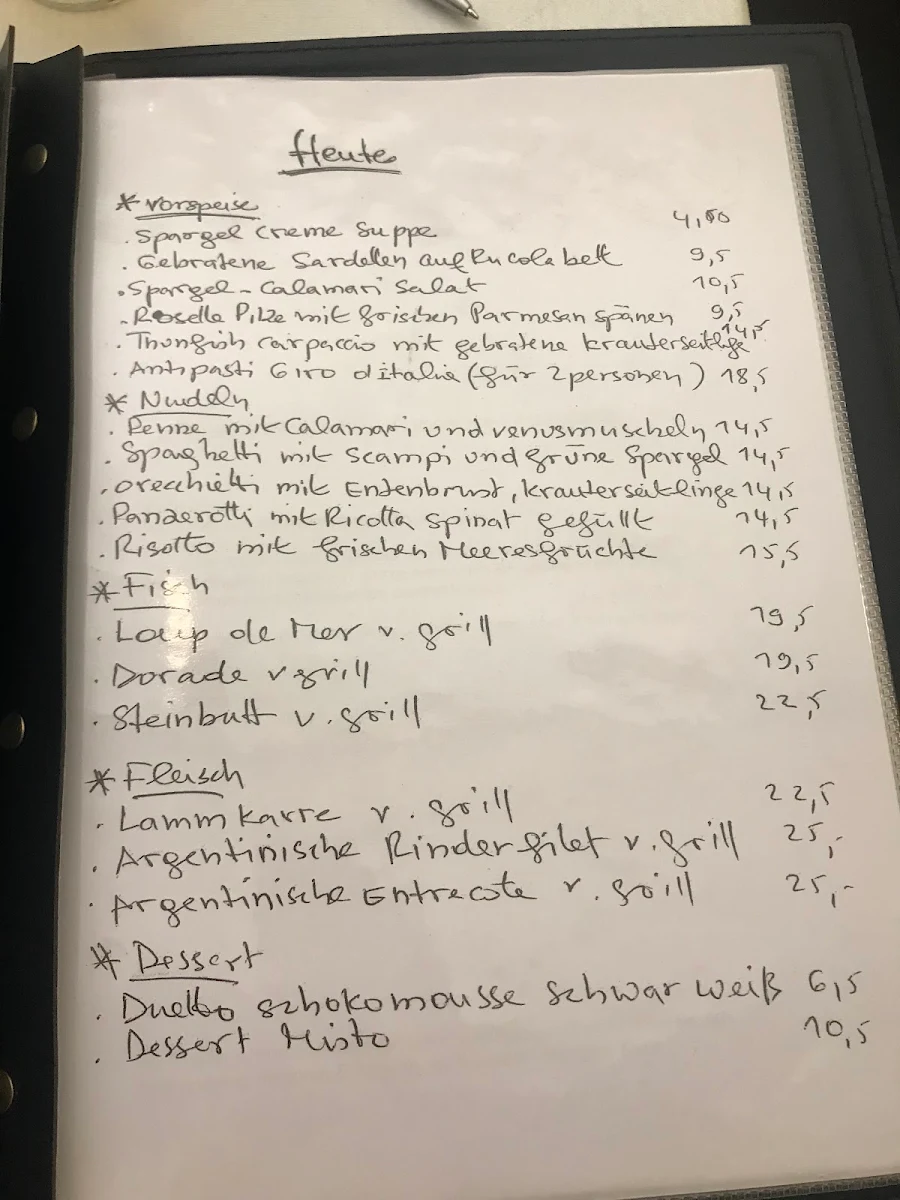 Heute
* Vorspeise
. Spargel Creme Suppe 4,00
. Gebratene Sardellen auf Rucola bett 9,5
. Spargel - Calamari Salat 10,5
. Rosella Pilze mit frischen Parmesan spänen 9,5
. Thunfish carpaccio mit gebratene krauterseitlige 14,5
. Antipasti Giro d'italia (für 2 personen) 18,5
* Nudeln
. Penne mit Calamari und venusmuscheln 14,5
. Spaghetti mit Scampi und grüne Spargel 14,5
. orecchietti mit Entenbrust, krauterseitlinge 14,5
. Panzerotti mit Ricotta spinat gefüllt 14,5
. Risotto mit frischen Meeresfrüchte 15,5
* Fisch
. Loup de Mer v. grill 19,5
. Dorade v grill 19,5
. Steinbutt v. grill 22,5
* Fleisch
. Lammkarre v. grill 22,5
. Argentinische Rinderfilet v. grill 25,-
. Argentinische Entrecote v. grill 25,-
* Dessert
. Duetto schokomousse schwar weiß 6,5
. Dessert Misto 10,5